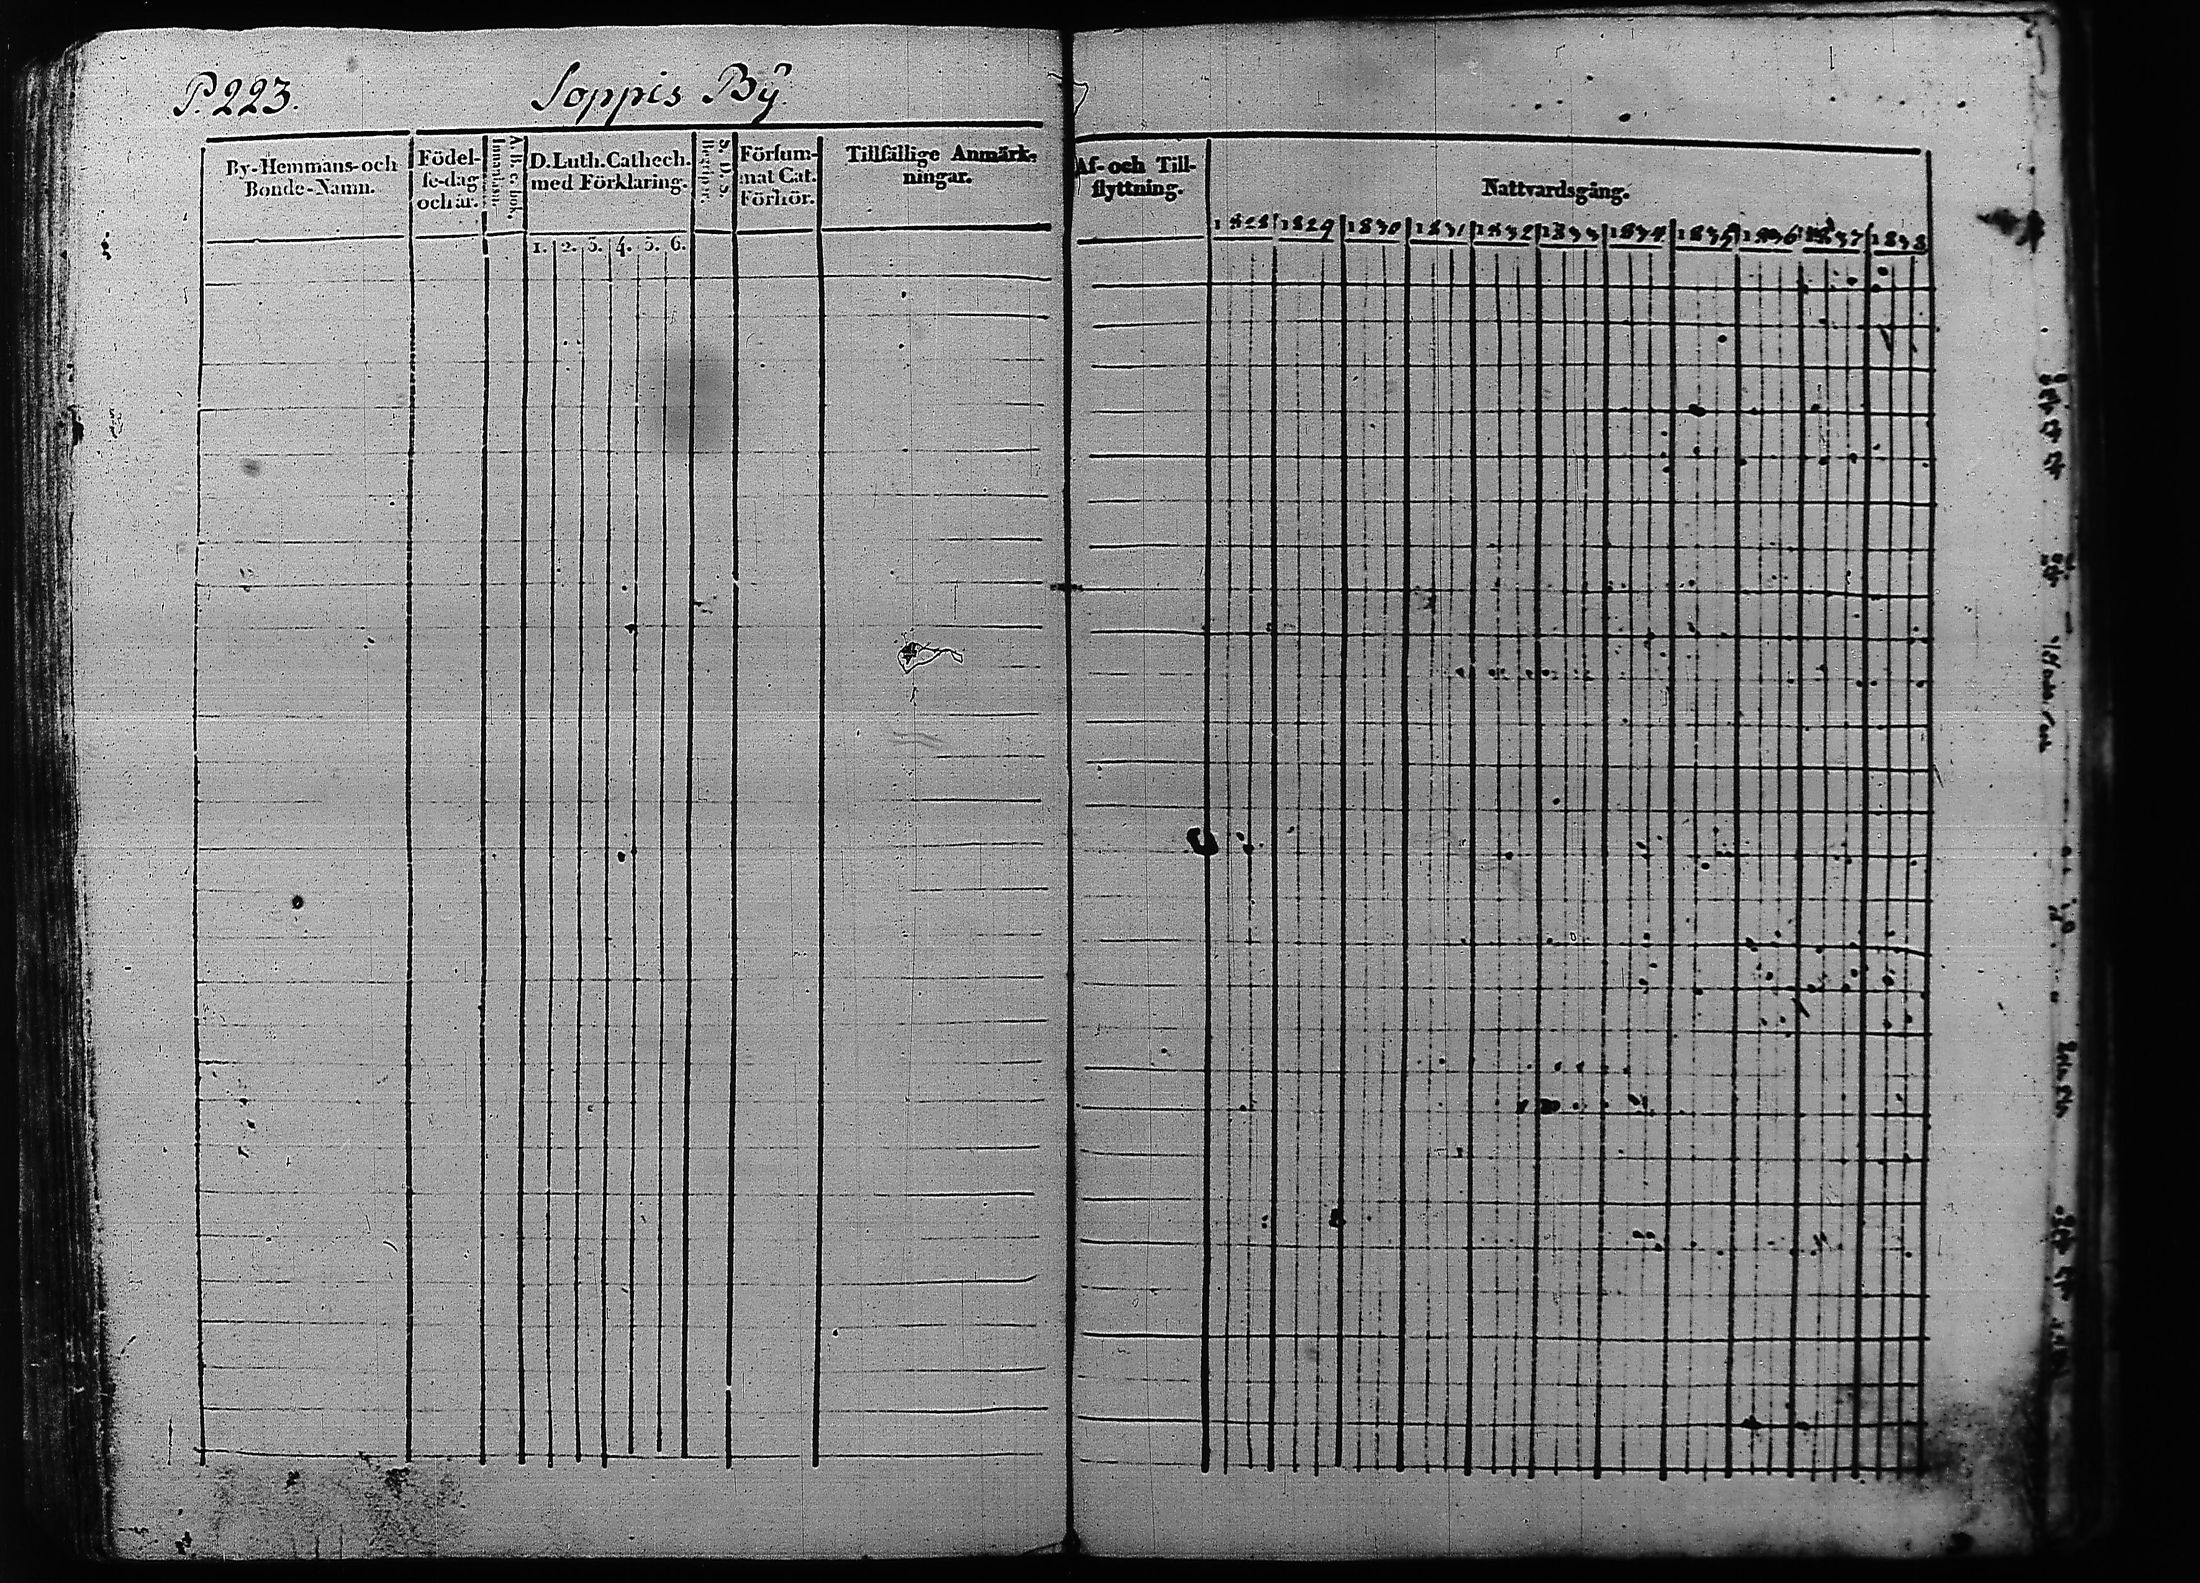 P. 223. Soppis Bÿ
By-Hemmans-och
Bonde-Namn.
Födel-
se-dag
och år.
A. B. c. bok.
Innantill.
D. Luth. Cathech.
med Förklaring.
1. 2. 3. 4. 5. 6.
S. D. s.
Begripr.
Försum-
mat Cat.
Förhör.
Tillfällige Anmärk-
ningar.
Af- och Till-
flyttning.
Nattvardsgång.
1828 1829 1830 1831 1832 1833 1834 1835 1836 1837 1838